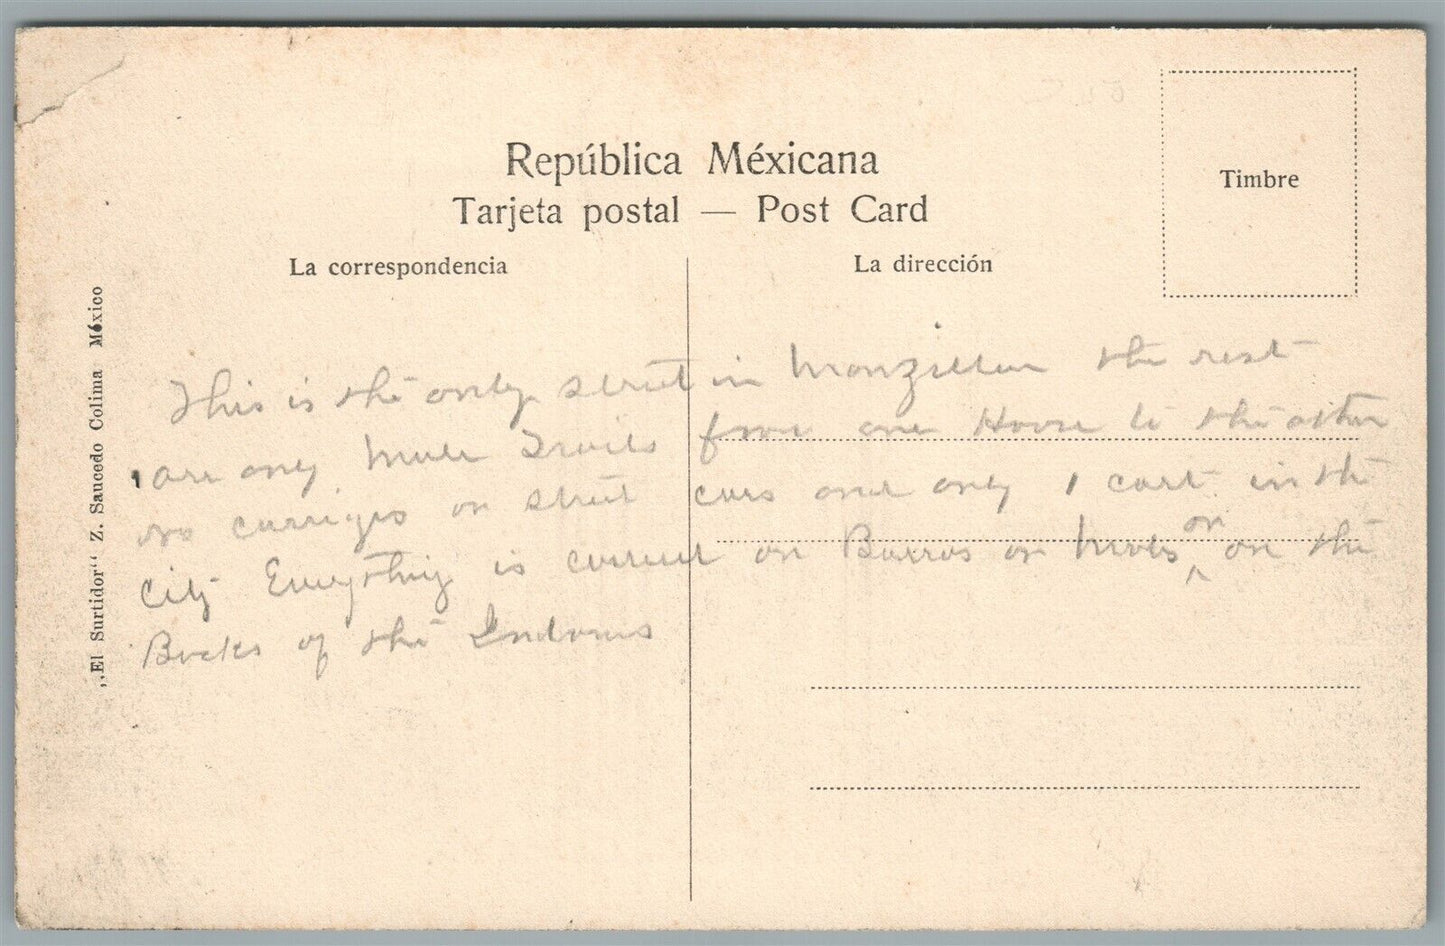 República Méxicana
Tarjeta postal — Post Card
La correspondencia
La dirección
Timbre
„El Surtidor“ Z. Saucedo Colima México
This is the only street in Manzillan the rest
are only Mule Trails from one House to the other
no carriges or street cars and only 1 cart in the
City Everything is carried on Burros or Mules on on the
Backs of the Indians